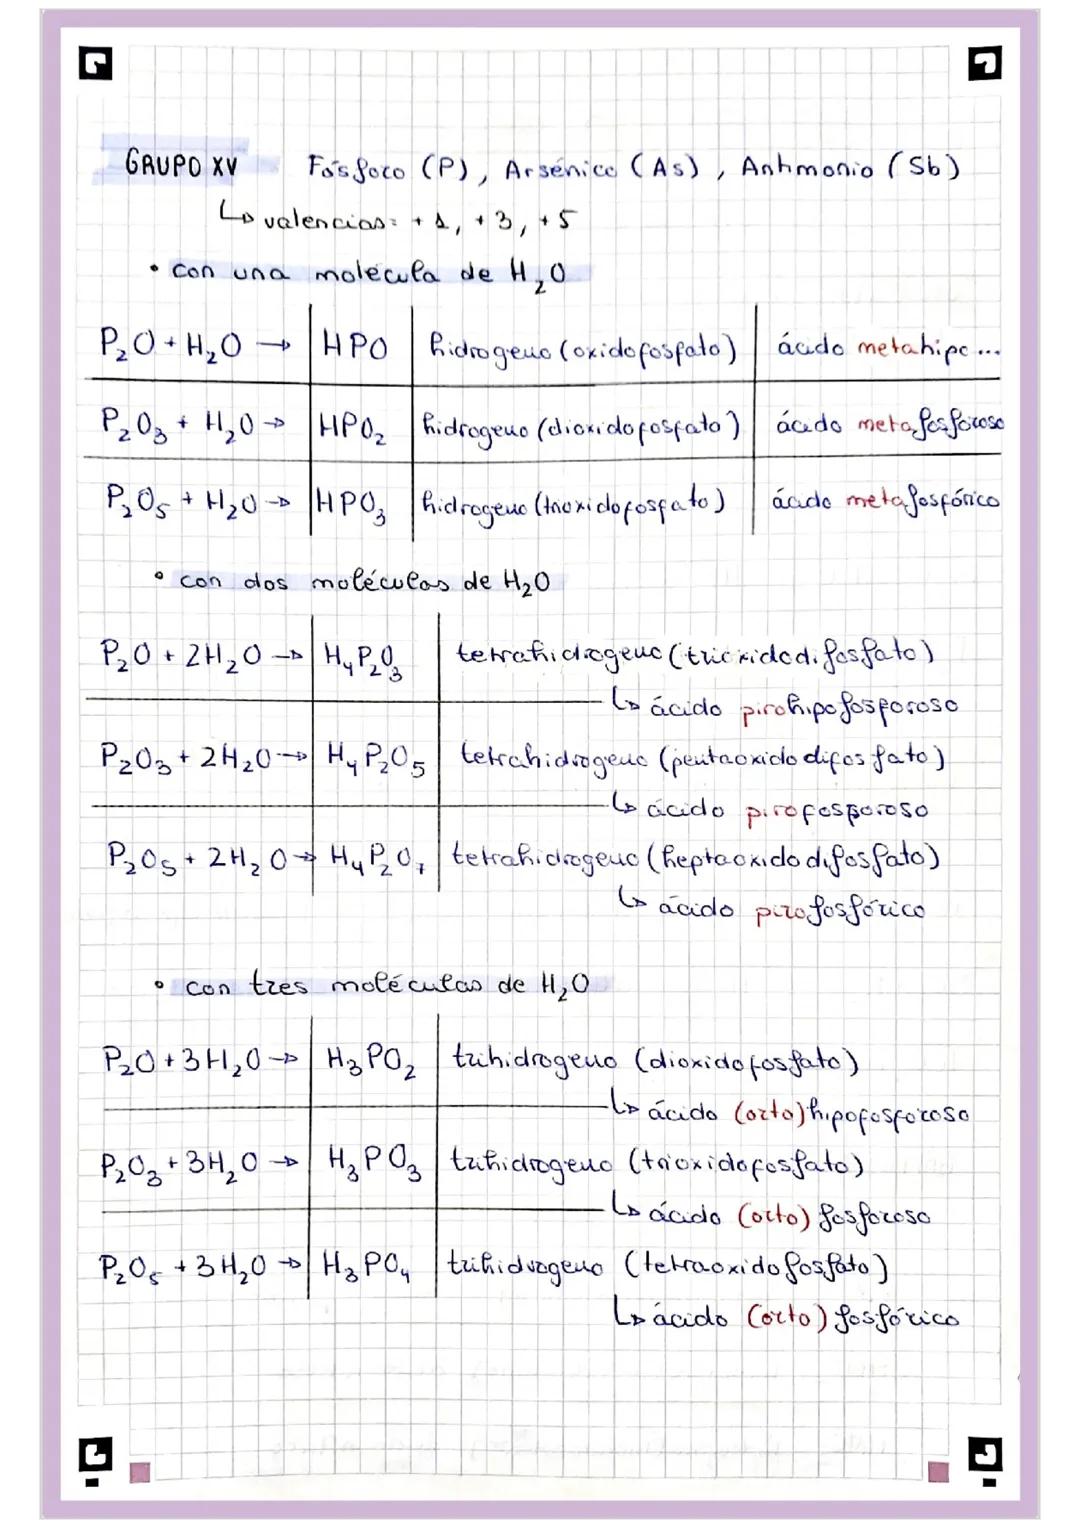 GRUPO XV Fósforo (P), Arsénico (As), Antimonio (Sb)
↳ valencias: +1, +3, +5
• con una molécula de H₂O
P₂O + H₂O → HPO hidrogeno (oxidofosfato) ácido metahipo...
P₂O₃ + H₂O → HPO₂ hidrogeno (dioxidofosfato) ácido metafosforoso
P₂O₅ + H₂O → HPO₃ hidrogeno (trioxidofosfato) ácido metafosfórico
• con dos moléculas de H₂O
P₂O + 2H₂O → H₄P₂O₃ tetrahidrogeno (trioxidodifosfato)
↳ ácido pirohipofosforoso
P₂O₃ + 2H₂O → H₄P₂O₅ tetrahidrogeno (pentaoxidodifosfato)
↳ ácido pirofosforoso
P₂O₅ + 2H₂O → H₄P₂O₇ tetrahidrogeno (heptaoxidodifosfato)
↳ ácido pirofosfórico
• con tres moléculas de H₂O
P₂O + 3H₂O → H₃PO₂ trihidrogeno (dioxidofosfato)
↳ ácido (orto)hipofosforoso
P₂O₃ + 3H₂O → H₃PO₃ trihidrogeno (trioxidofosfato)
↳ ácido (orto) fosforoso
P₂O₅ + 3H₂O → H₃PO₄ trihidrogeno (tetraoxidofosfato)
↳ ácido (orto) fosfórico